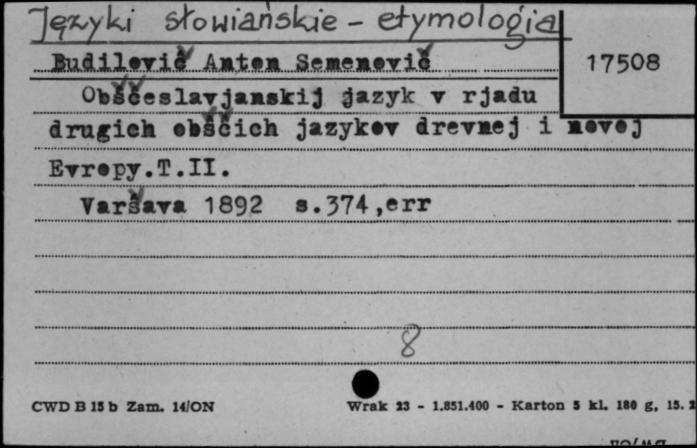 Języki słowiańskie - etymologia
17508
Budilovič Anton Semenovič
Obščeslavjanskij jazyk v rjadu
drugich obščich jazykov drevnej i novoj
Evropy.T.II.
Varšava 1892 s.374,err
8
CWD B 15 b Zam. 14/ON
Wrak 23 - 1.851.400 - Karton 5 kl. 180 g, 15.2